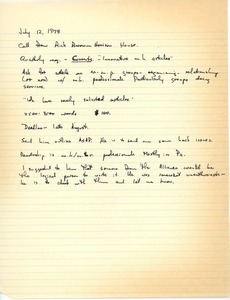 July 12, 1978
Call from Rick Horizon House.
Quarterly mag - "Innovative m.h. articles"
Ask for article on m.p. groups - organizing, relationship
w/ m.h. professionals. Particularly groups doing
service.
"We have newly selected articles"
2500- words $100.
Deadline - late August.
Said I'm ASAP. He is to send me some back issues.
Readership is m.h./m.r. professionals mostly in Pa.
I suggested to him that someone from the Alliance would be
the logical person to write it. He was somewhat unenthusiastic -
he is to check with them and let me know.